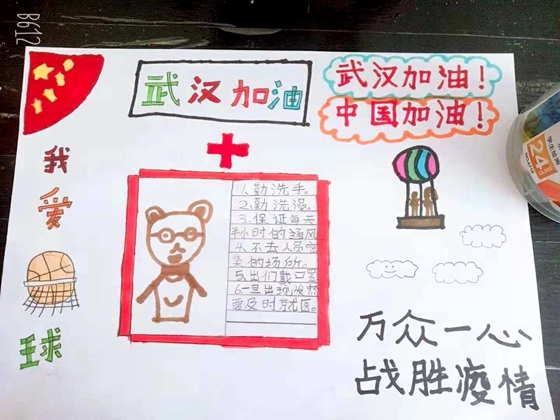 B612
武汉加油
武汉加油！
中国加油！
我
爱
球
1.勤洗手。
2.勤洗澡。
3.保证每天
半小时的通风
4.不去人员密
集的场所。
5.出们戴口罩
6.一旦出现发热
要及时就医。
万众一心
战胜疫情
24